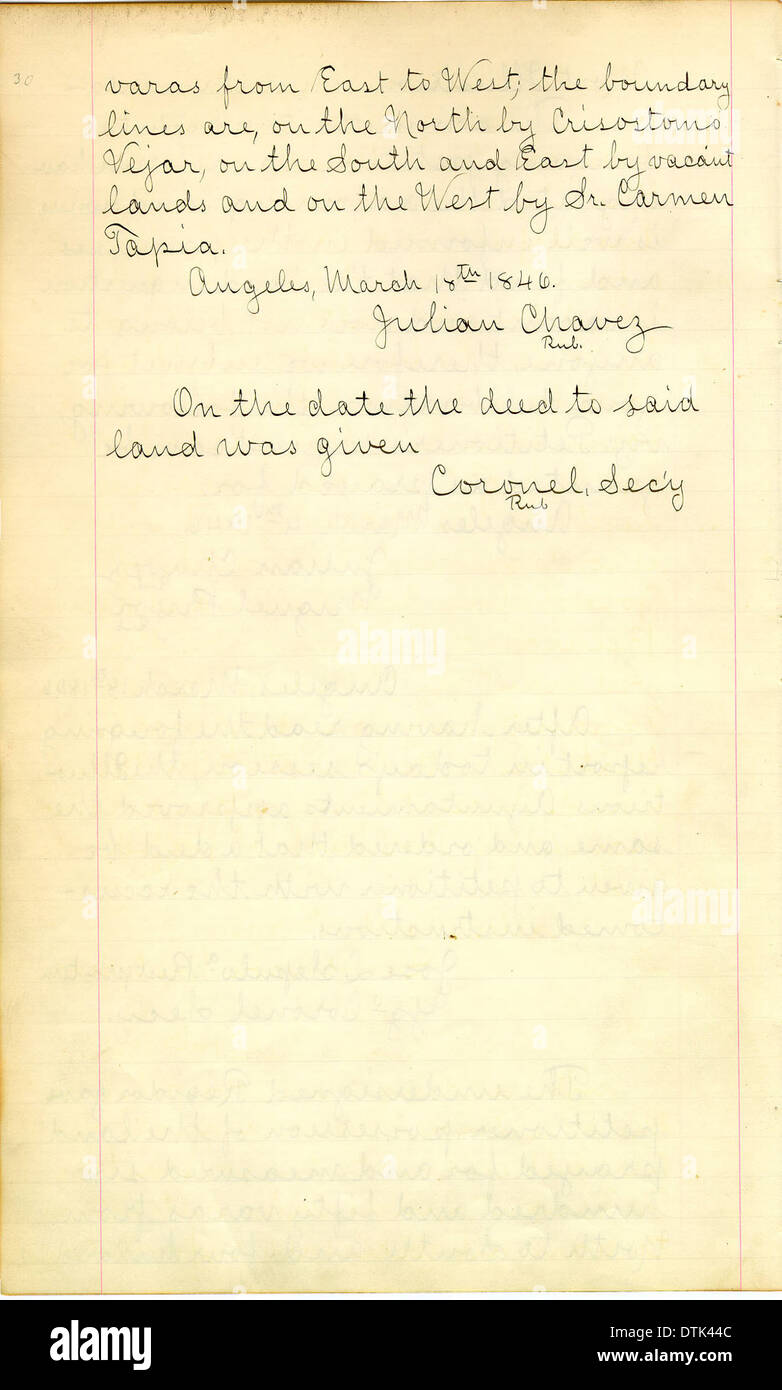 30
varas from East to West; the boundary
lines are, on the North by Crisostomo
Vejar, on the South and East by vacant
lands and on the West by Sr. Carmen
Tapia.
Angeles, March 18th 1846.
Julian Chavez
Rub.
On the date the deed to said
land was given
Coronel, Sec'y
Rub
alamy
Image ID: DTK44C
www.alamy.com